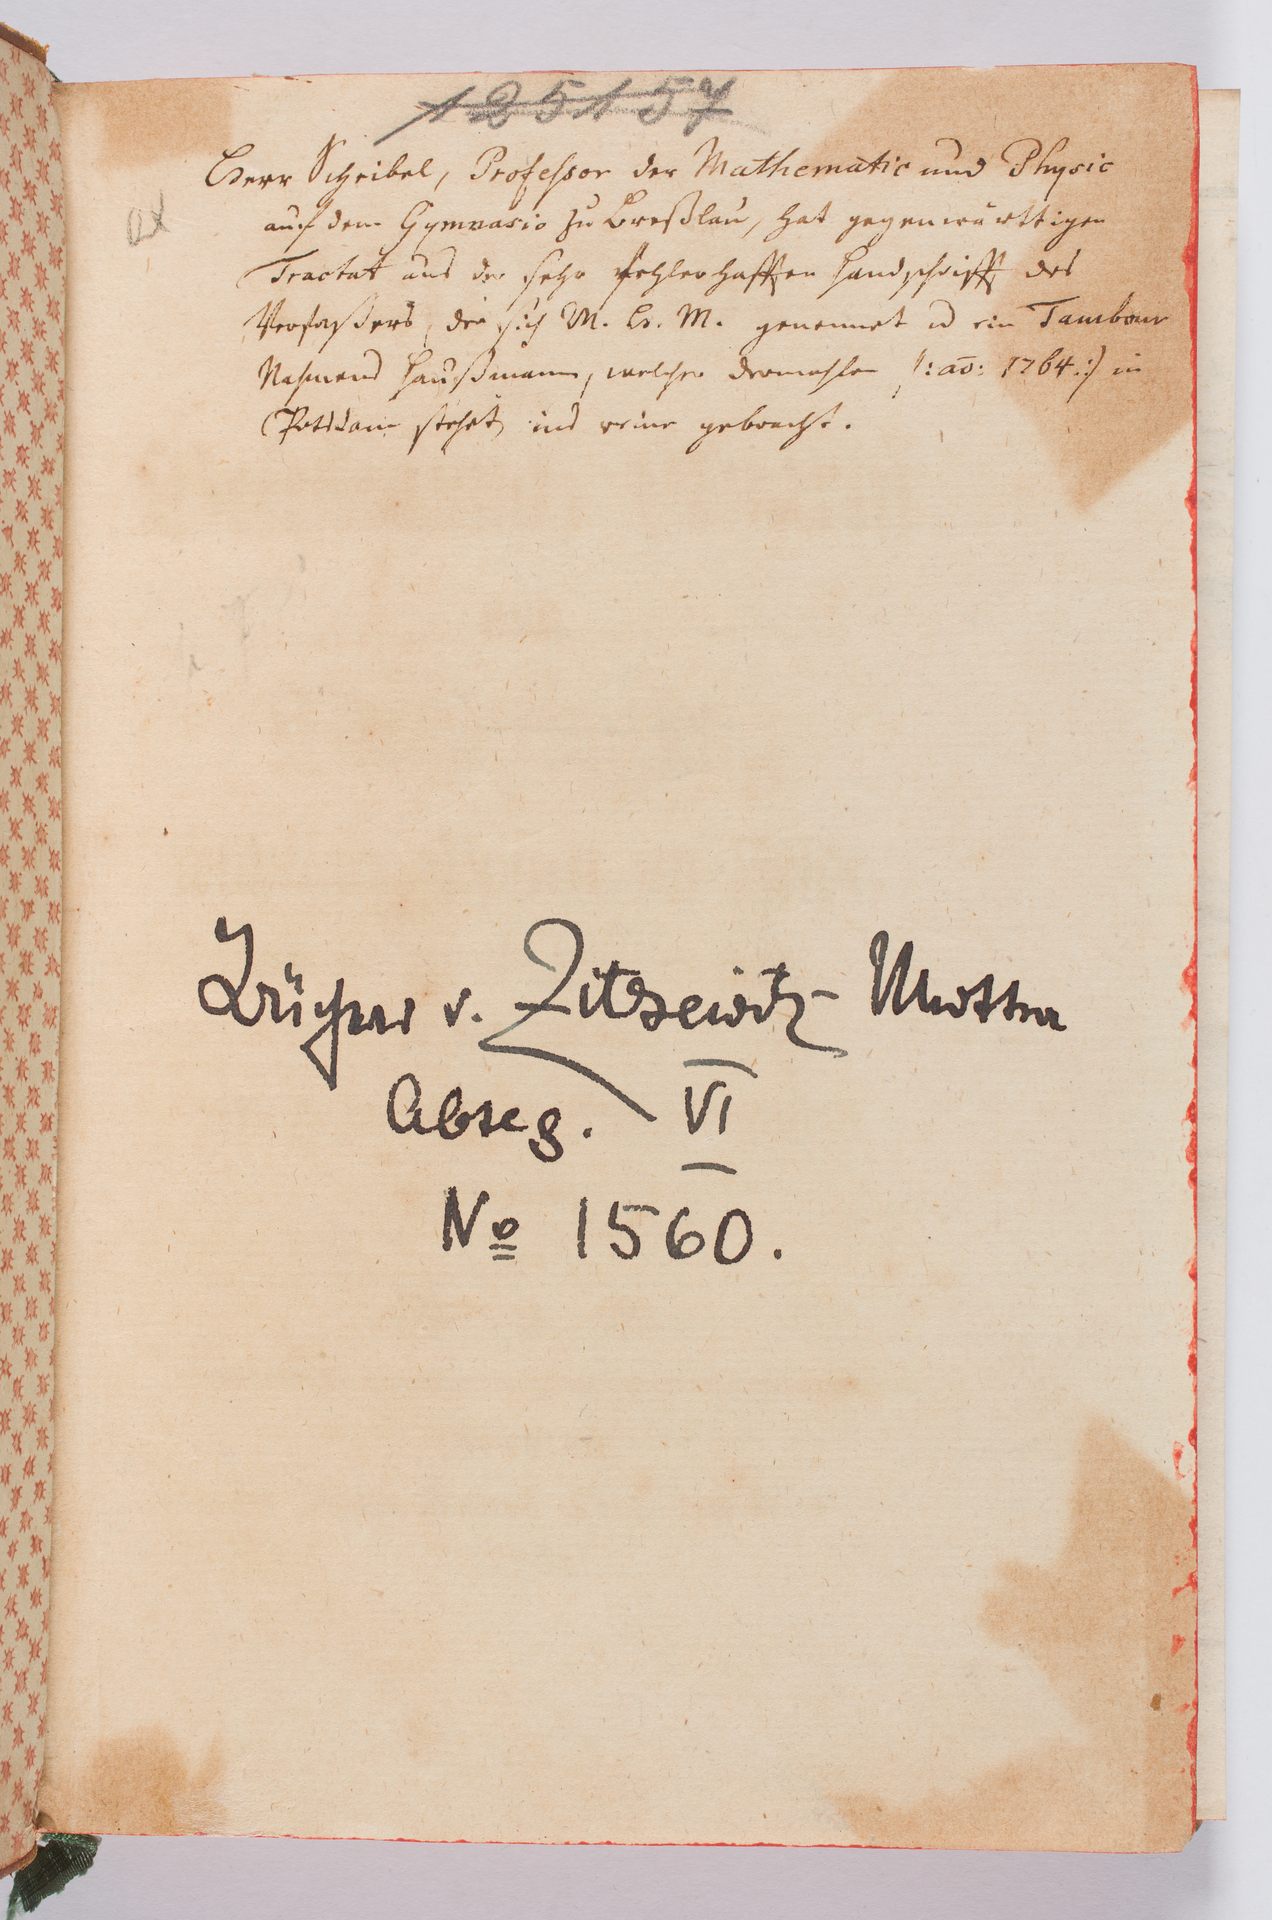 125157
Herr Scheibel, Professor der Mathematic und Physic
auf dem Gymnasio zu Breßlau, hat gegenwärttigen
Tractat aus der sehr fehlerhafften Handschrifft des
Verfaßers, der sich M. Cr. M. genennet u ein Tambour
Nahmens Haußmann, welcher dermahlen /:ao: 1764:/ in
Potsdam stehet, ins reine gebracht.
Bücher v. Zitzewitz-Muttrin
Abteg. VI
No 1560.